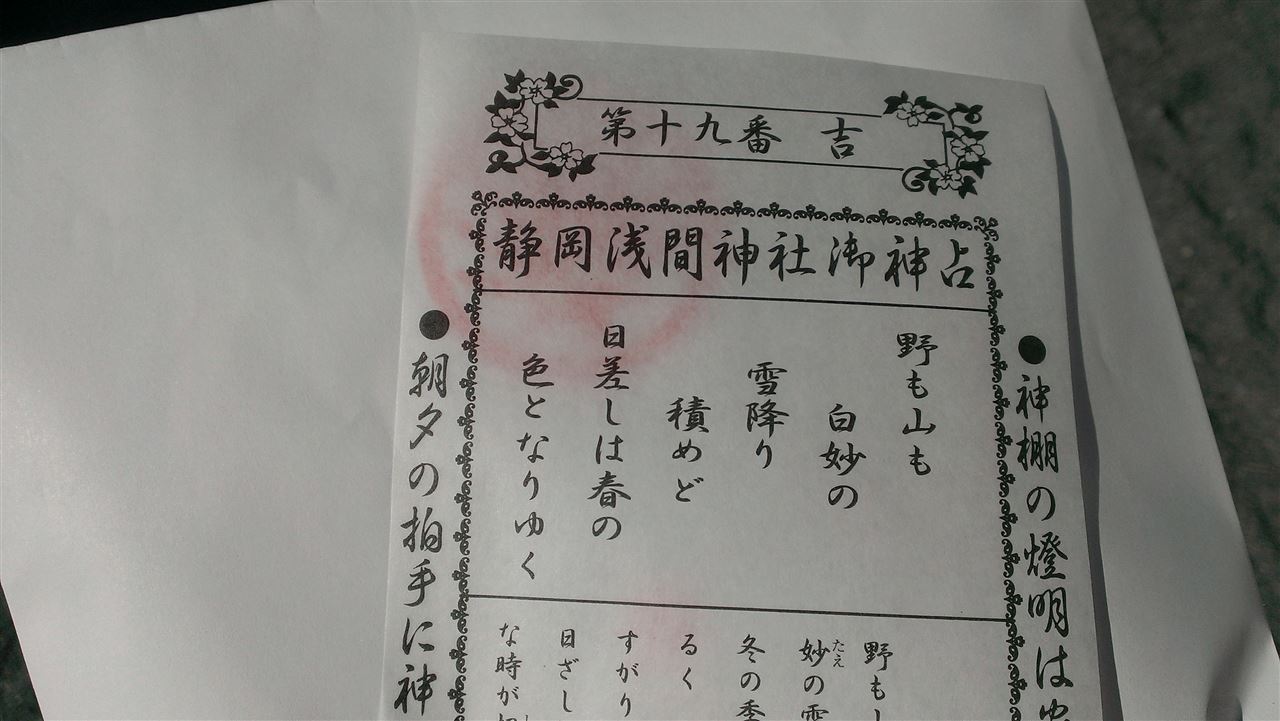 第十九番 吉
静岡浅間神社御神占
●神棚の燈明は
野も山も
白妙の
雪降り
積めど
日差しは春の
色となりゆく
野も
妙の雪
たえ
冬の季
るく
すがり
日ざし
な時が
●朝夕の拍手に神